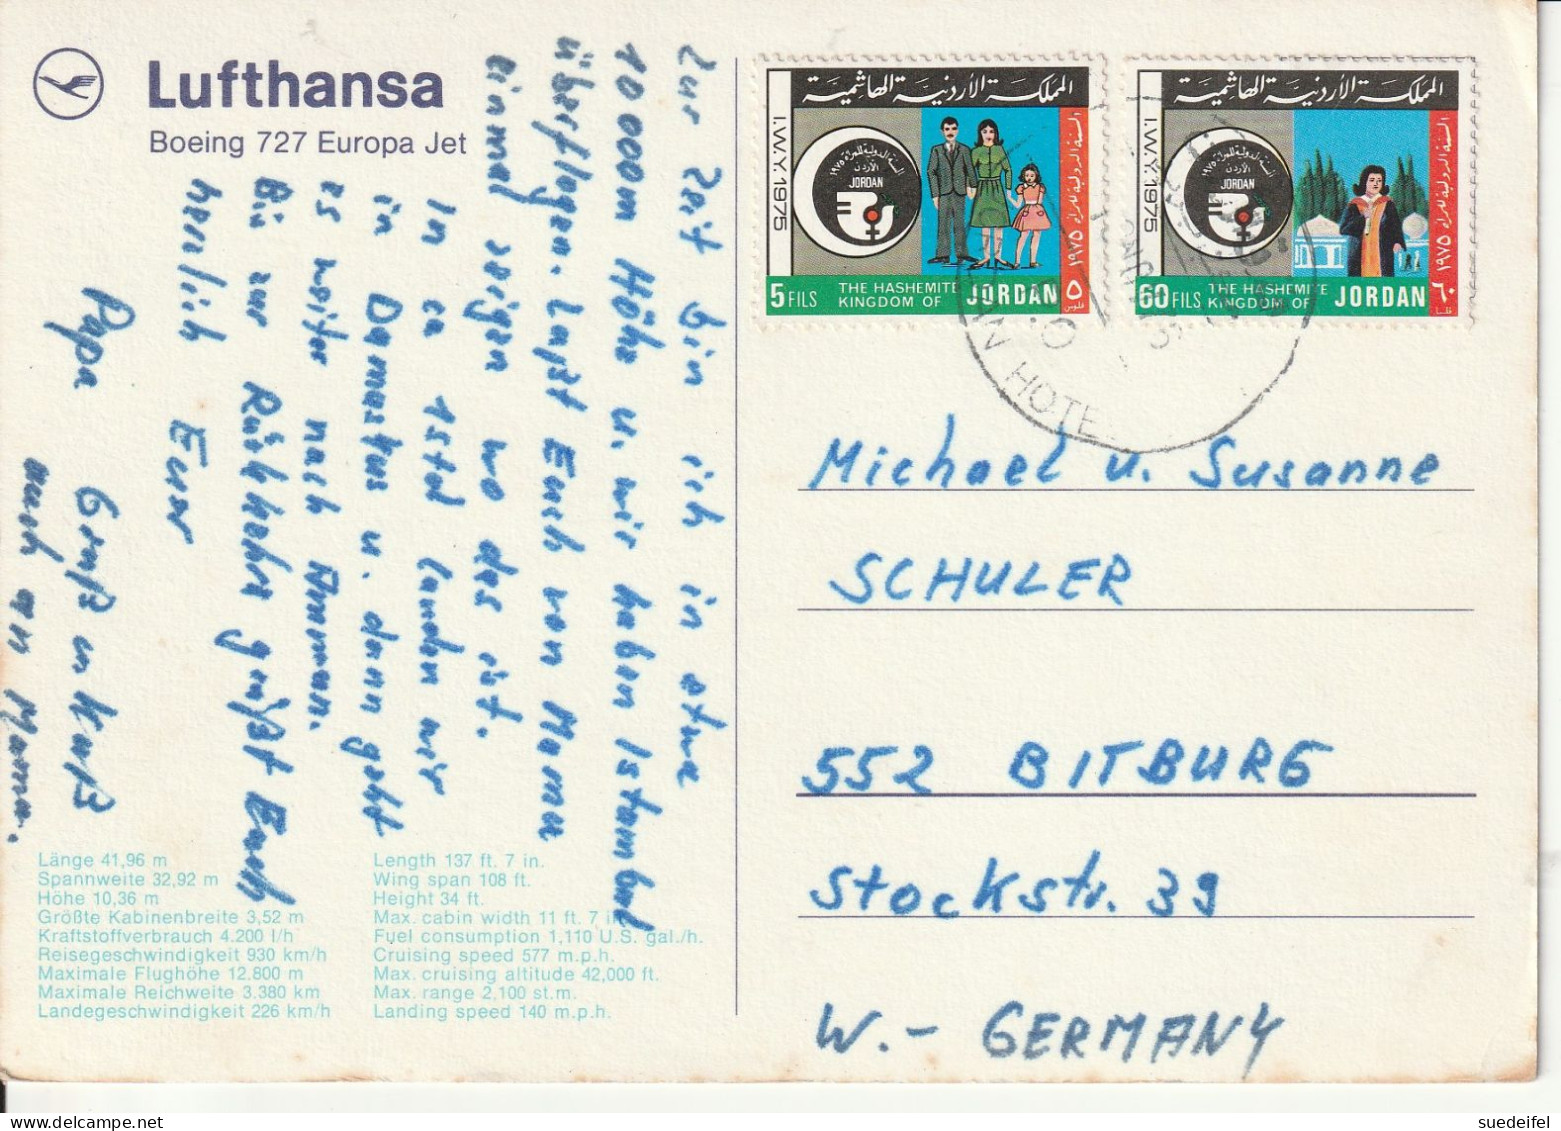 Lufthansa
Boeing 727 Europa Jet
Zur Zeit bin ich in etwa
10 000m Höhe u. wir haben Istambul
überflogen. Laßt Euch von Mama
einmal zeigen wo das ist.
In ca 1 Std landen wir
in Damaskus u. dann geht
es weiter nach Amman.
Bis zur Rückkehr grüßt Euch
herzlich Euer
Papa
Gruß u Kuß
auch an Mama.
Länge 41,96 m
Spannweite 32,92 m
Höhe 10,36 m
Größte Kabinenbreite 3,52 m
Kraftstoffverbrauch 4.200 l/h
Reisegeschwindigkeit 930 km/h
Maximale Flughöhe 12.800 m
Maximale Reichweite 3.380 km
Landegeschwindigkeit 226 km/h
Length 137 ft. 7 in.
Wing span 108 ft.
Height 34 ft.
Max. cabin width 11 ft. 7 in.
Fuel consumption 1,110 U.S. gal./h.
Cruising speed 577 m.p.h.
Max. cruising altitude 42,000 ft.
Max. range 2,100 st.m.
Landing speed 140 m.p.h.
المملكة الأردنية الهاشمية
I.W.Y. 1975
السنة الدولية للمرأة ١٩٧٥
الأردن
JORDAN
السنة الدولية للمرأة ١٩٧٥
5 FILS THE HASHEMITE KINGDOM OF JORDAN ٥ فلس
المملكة الأردنية الهاشمية
I.W.Y. 1975
السنة الدولية للمرأة ١٩٧٥
الأردن
JORDAN
السنة الدولية للمرأة ١٩٧٥
60 FILS THE HASHEMITE KINGDOM OF JORDAN ٦٠ فلسا
HOTE
Michael u. Susanne
SCHULER
552 BITBURG
Stockstr. 39
W.- GERMANY
suedeifel